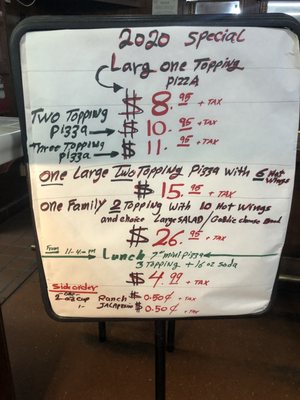 2020 Special
Larg one Topping
PIZZA
$8.95 + TAX
Two Topping
pizza → $10.95 + TAX
Three Topping
pizza → $11.95 + TAX
one Large Two Topping Pizza with 6 Hot
Wings
$15.95 + TAX
one Family 2 Topping with 10 Hot wrings
and choice Large SALAD / Gablic cheese Bread
$26.95 + TAX
From 11-4 pm Lunch 7" mini Pizza
3 Topping + 16 oz soda
$4.99 + TAX
Side order
2-oz cup Ranch $0.50¢ + TAX
JALAPENO $0.50¢ + TAX